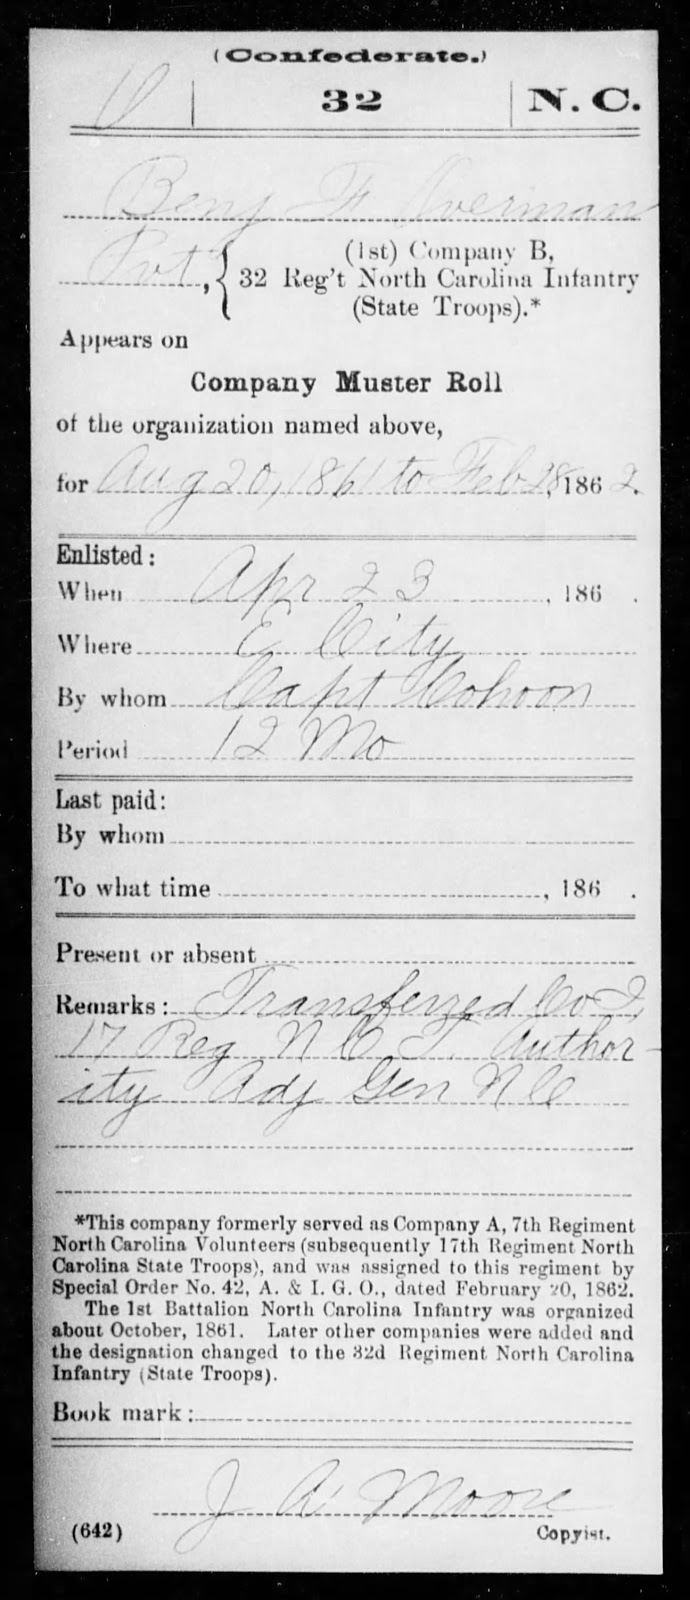 (Confederate.)
O | 32 | N. C.
Benj F Overman
Pvt, { (1st) Company B,
32 Reg't North Carolina Infantry
(State Troops).*
Appears on
Company Muster Roll
of the organization named above,
for Aug 20, 1861 to Feb 28, 1862.
Enlisted:
When Apr 23, 186 .
Where E City
By whom Capt Cohoon
Period 12 Mo
Last paid:
By whom
To what time , 186 .
Present or absent
Remarks: Transferred Co I,
17 Reg N C T. Author-
ity Adj Gen N C
*This company formerly served as Company A, 7th Regiment
North Carolina Volunteers (subsequently 17th Regiment North
Carolina State Troops), and was assigned to this regiment by
Special Order No. 42, A. & I. G. O., dated February 20, 1862.
The 1st Battalion North Carolina Infantry was organized
about October, 1861. Later other companies were added and
the designation changed to the 32d Regiment North Carolina
Infantry (State Troops).
Book mark:
J A Moore
(642) Copyist.